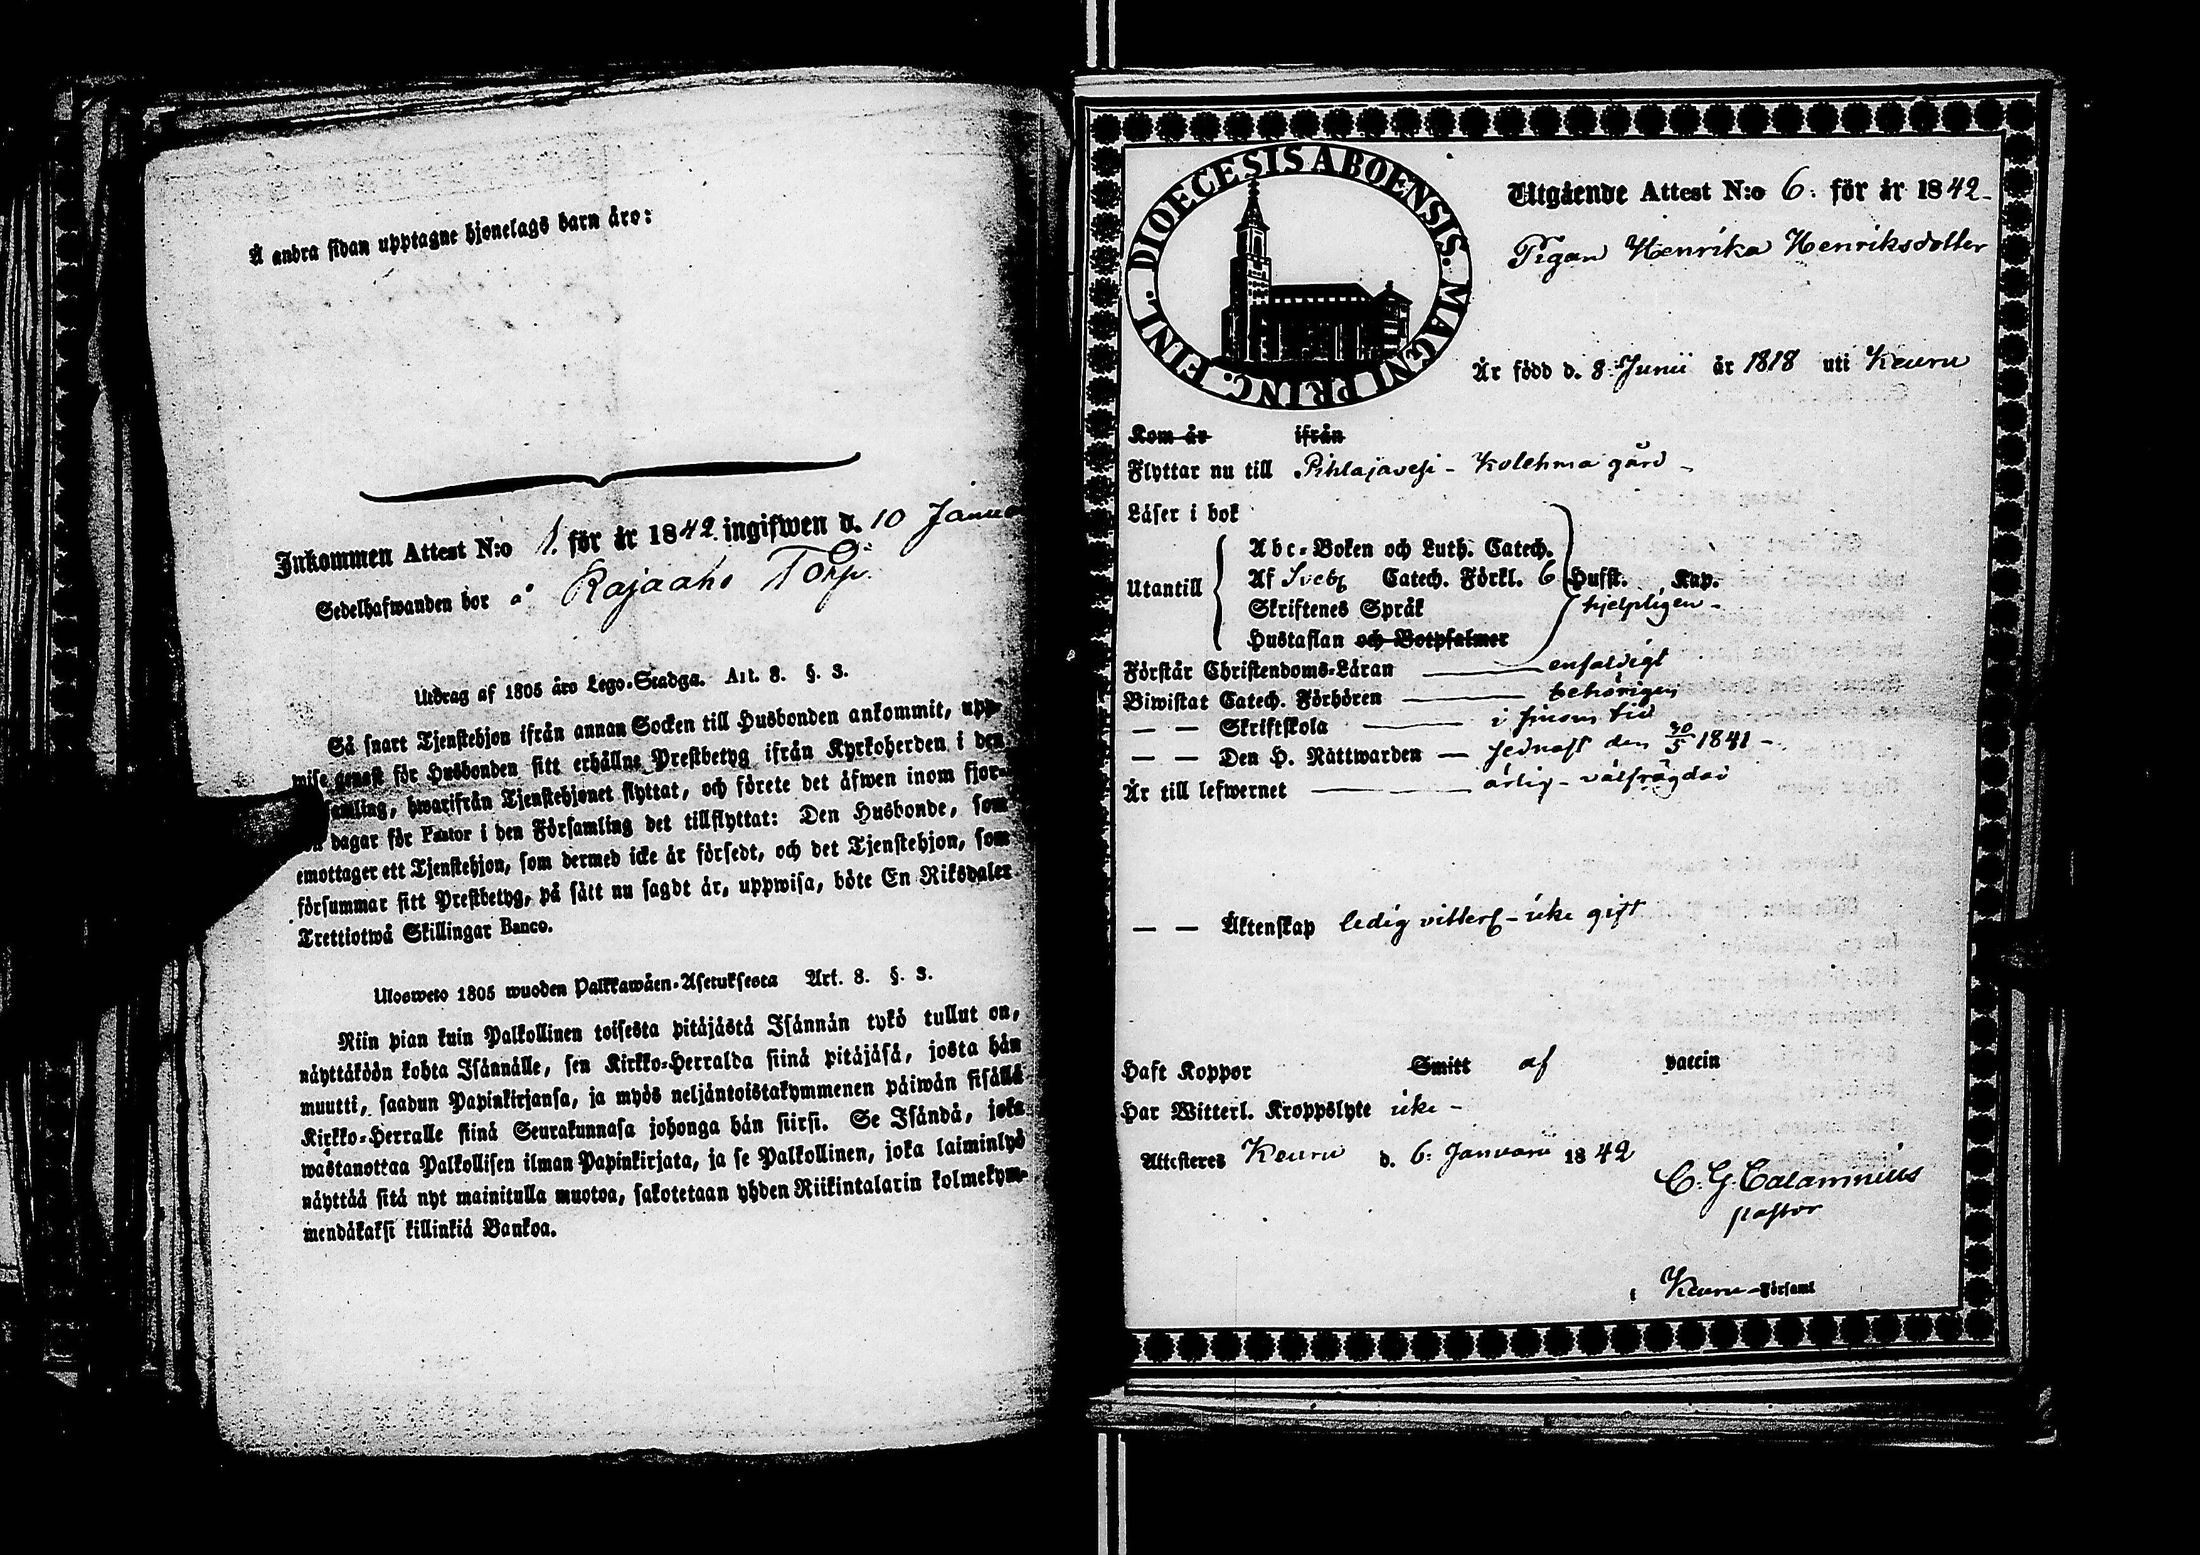 Å andra sidan upptagne hjonelags barn äro:
Inkommen Attest N:o 1. för år 1842 ingifwen d. 10 Janua
Sedelhafwanden bor å Rajaaho Torp.
Utdrag af 1805 års Lego-Stadga. Art. 8. §. 3.
Så snart Tjenstehjon ifrån annan Socken till Husbonden ankommit, upp-
wise genast för Husbonden sitt erhållne Prestbetyg ifrån Kyrkoherden i den
samling, hwarifrån Tjenstehjonet flyttat, och förete det äfwen inom fjor-
dagar för Pastor i den Församling det tillflyttat: Den Husbonde, som
emottager ett Tjenstehjon, som dermed icke är försedt, och det Tjenstehjon, som
försummar sitt Prestbetyg, på sätt nu sagdt är, uppwisa, böte En Riksdaler
Trettiotwå Skillingar Banco.
Ulosweto 1805 wuoden Palkkawäen-Asetuksesta Art. 8. §. 3.
Niin pian kuin Palkollinen toisesta pitäjästä Isännän tykö tullut on,
näyttäköön kohta Isännälle, sen Kirkko-Herralda siinä pitäjäsä, josta hän
muutti, saadun Papinkirjansa, ja myös neljäntoistakymmenen päiwän sisällä
Kirkko-Herralle siinä Seurakunnasa johonga hän siirsi. Se Isändä, joka
wastanottaa Palkollisen ilman Papinkirjata, ja se Palkollinen, joka laiminlyö
näyttää sitä nyt mainitulla muotoa, sakotetaan yhden Riikintalarin kolmekym-
mendäkaksi killinkiä Bankoa.
DIOECESIS ABOENSIS. MAGNI PRINC. FINL.
Utgående Attest N:o 6. för år 1842-
Pigan Henrika Henriksdotter
Är född d. 8. Junii år 1818 uti Keuru
Kom år ifrån
Flyttar nu till Pihlajavesi - Kolehma gård -
Läser i bok
Utantill
Abc-Boken och Luth. Catech.
Af Sveb Catech. Förkl. 6 Hufst. Kap.
Skriftenes Språk hjelpligen -
Hustaflan och Botpsalmer
Förstår Christendoms-Läran enfaldigt
Biwistat Catech. Förhören behörigen
— — Skriftskola i sinom tid
— — Den H. Nattwarden — sednast den 30/5 1841 -
Är till lefwernet ärlig - välfrägdad
— — Äktenskap ledig vitterl - icke gift
Haft Koppor Smitt af vaccin
Har Witterl. Kroppslyte icke -
Attesteres Keuru d. 6. Januarii 1842
C. G. Calamnius
pastor
i Keuru Församl